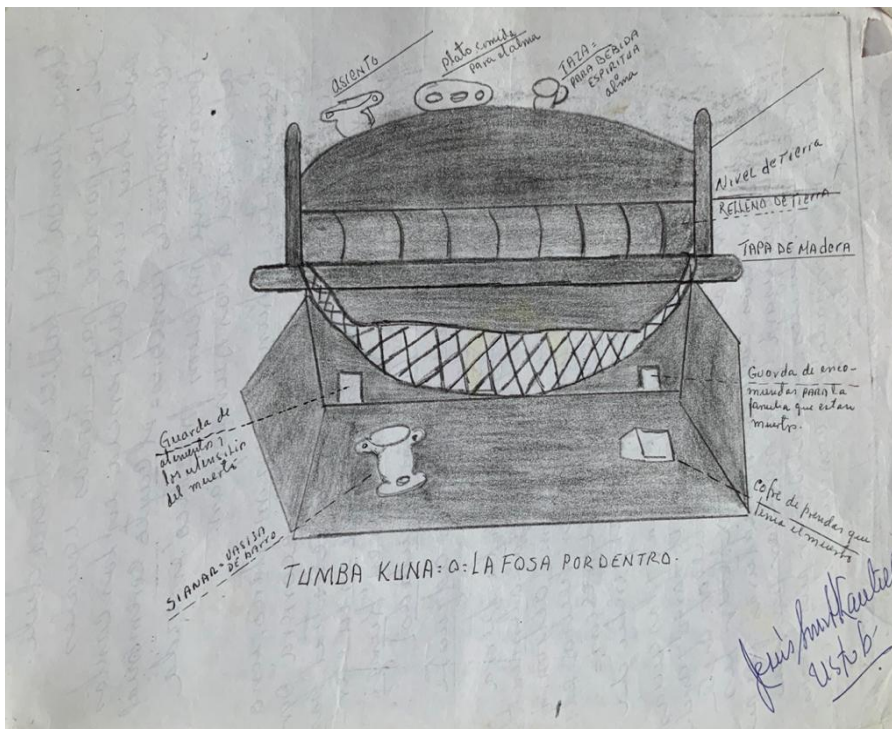 ASIENTO
plato comida
para el alma
TAZA=
PARA BEBIDA
ESPIRITUA
alma
Nivel de Tierra
RELLENO DE TIERRA
TAPA DE MADERA
Guarda de enco-
miendas PARA la
familia que estan
muertos.
Guarda de
alimentos y
los utensilio
del muerto
cofre de prendas que
tenia el muerto
SIANAR= VASIJA
DE BARRO
TUMBA KUNA: O: LA FOSA POR DENTRO.
Jesús Smith